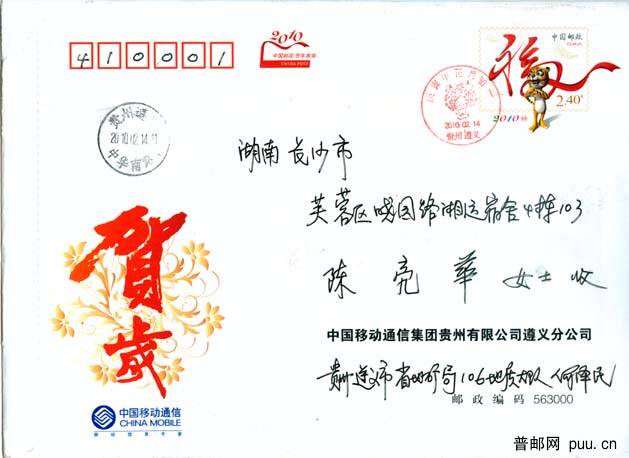 410001
2010
中国邮政 贺年有奖
CHINA POST
中国邮政
CHINA
2.40元
2010
2010.02.14
贵州 遵义
贵州遵义
2010.02.14.11
中华南路
湖南 长沙市
芙蓉区 城园路湘运宿舍4栋103
陈亮华 女士 收
贺
岁
中国移动通信集团贵州有限公司遵义分公司
贵州遵义市省地矿局106地质大队 何泽民
邮政编码 563000
中国移动通信
CHINA MOBILE
移动信息专家
普邮网 puu.cn